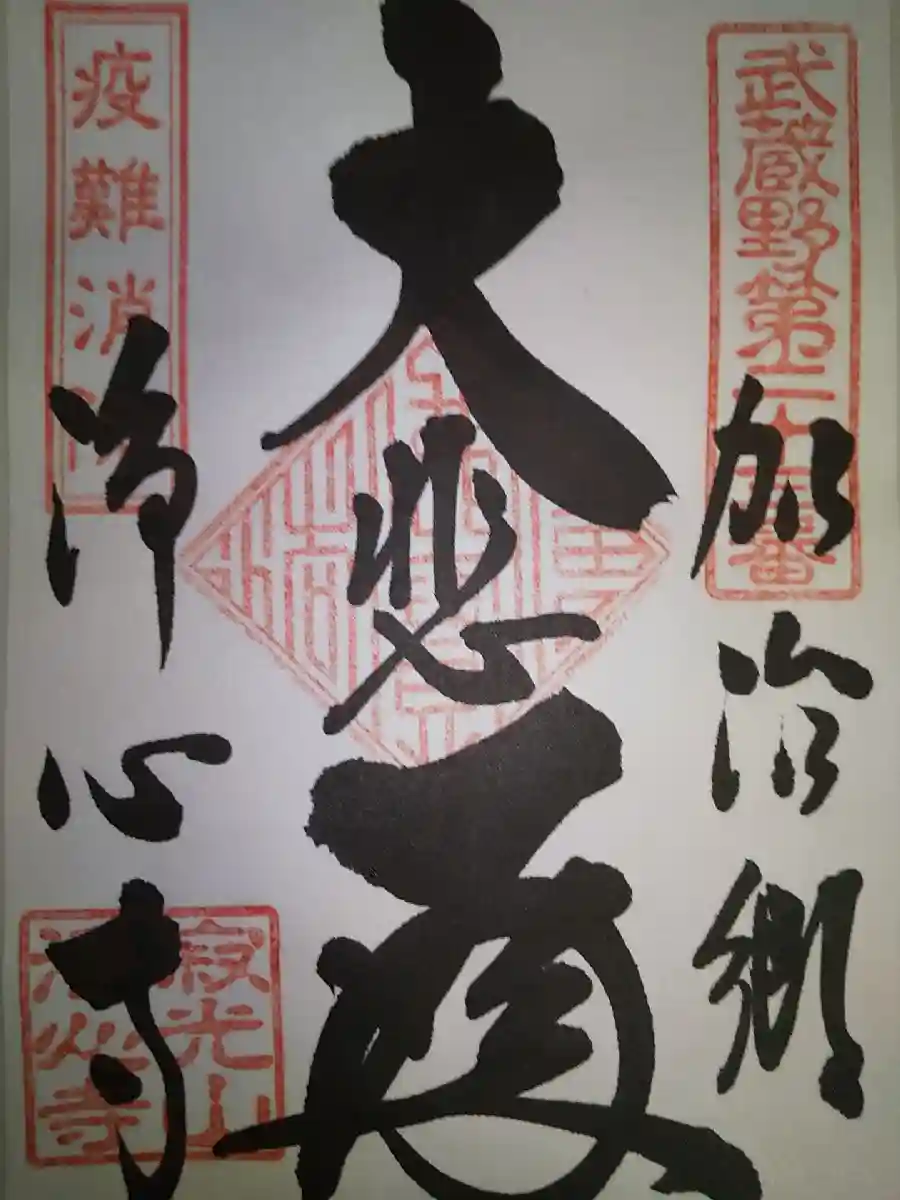 武蔵野第二十三番
加治郷
大悲殿
疫難消除
浄心寺
寂光山
浄心寺